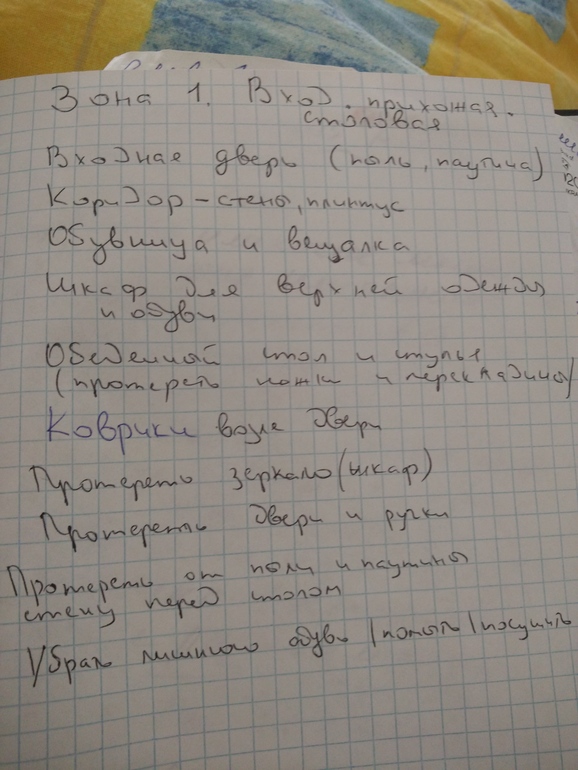 Зона 1. Вход. прихожая.
столовая
Входная дверь (пыль, паутина)
Коридор - стены, плинтус
Обувница и вешалка
Шкаф для верхней одежды
и обуви
Обеденный стол и стулья
(протереть ножки и перекладины)
Коврики возле двери
Протереть зеркало (шкаф)
Протереть двери и ручки
Протереть от пыли и паутины
стену перед столом
Убрать лишнюю обувь / помыть / посушить